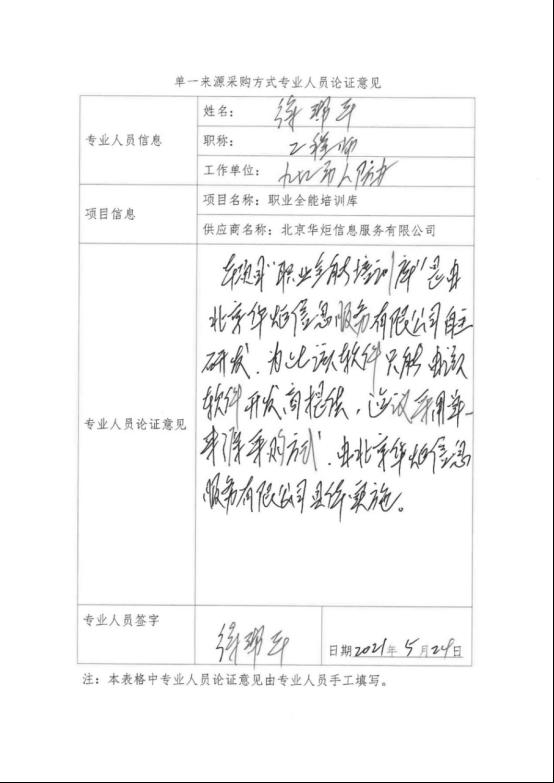 单一来源采购方式专业人员论证意见
专业人员信息
姓名：
职称：工程师
工作单位：九江市人防办
项目信息
项目名称：职业全能培训库
供应商名称：北京华炬信息服务有限公司
专业人员论证意见
本项目“职业全能培训库”是由
北京华炬信息服务有限公司自主
研发，为此该软件只能由该
软件开发商提供，建议采用单一
来源采购方式，由北京华炬信息
服务有限公司具体实施。
专业人员签字
日期2021年5月24日
注：本表格中专业人员论证意见由专业人员手工填写。